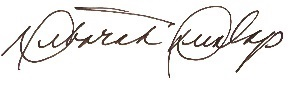 Deborah Dunlap